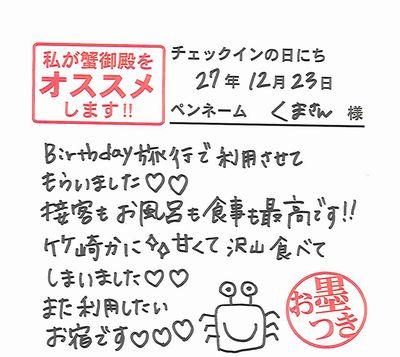 私が蟹御殿を
オススメ
します!!
チェックインの日にち
27年12月23日
ペンネーム くまさん 様
Birthday旅行で利用させて
もらいました♡♡
接客もお風呂も食事も最高です!!
竹崎かに✧✧甘くて沢山食べて
しまいました♡♡
また利用したい
お宿です♡♡♡
お墨
つき